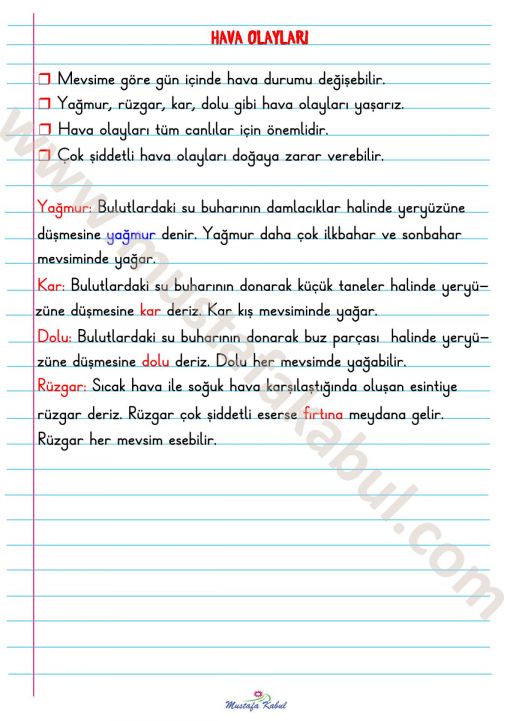 HAVA OLAYLARI
❒ Mevsime göre gün içinde hava durumu değişebilir.
❒ Yağmur, rüzgar, kar, dolu gibi hava olayları yaşarız.
❒ Hava olayları tüm canlılar için önemlidir.
❒ Çok şiddetli hava olayları doğaya zarar verebilir.
Yağmur: Bulutlardaki su buharının damlacıklar halinde yeryüzüne
düşmesine yağmur denir. Yağmur daha çok ilkbahar ve sonbahar
mevsiminde yağar.
Kar: Bulutlardaki su buharının donarak küçük taneler halinde yeryü-
züne düşmesine kar deriz. Kar kış mevsiminde yağar.
Dolu: Bulutlardaki su buharının donarak buz parçası halinde yeryü-
züne düşmesine dolu deriz. Dolu her mevsimde yağabilir.
Rüzgar: Sıcak hava ile soğuk hava karşılaştığında oluşan esintiye
rüzgar deriz. Rüzgar çok şiddetli eserse fırtına meydana gelir.
Rüzgar her mevsim esebilir.
www.mustafakabul.com
Mustafa Kabul